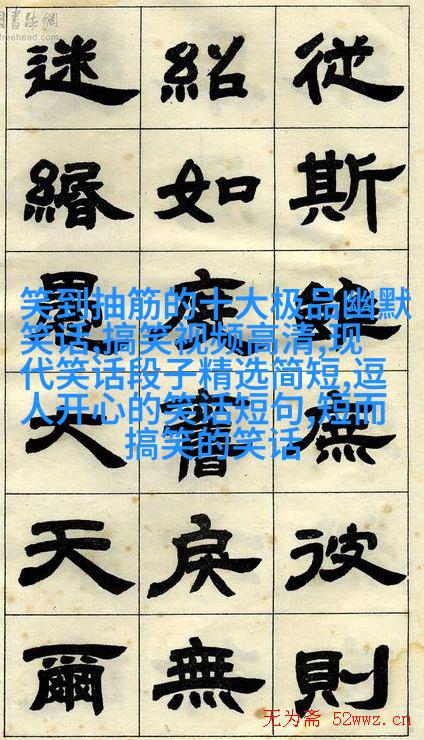 書法網
freehead.com
從斯彼則
紹如戾無
迷緡大天爾
笑到抽筋的十大极品幽默
笑话,搞笑视频高清,现
代笑话段子精选简短,逗
人开心的笑话短句,短而
搞笑的笑话
无为斋 52wwz.cn